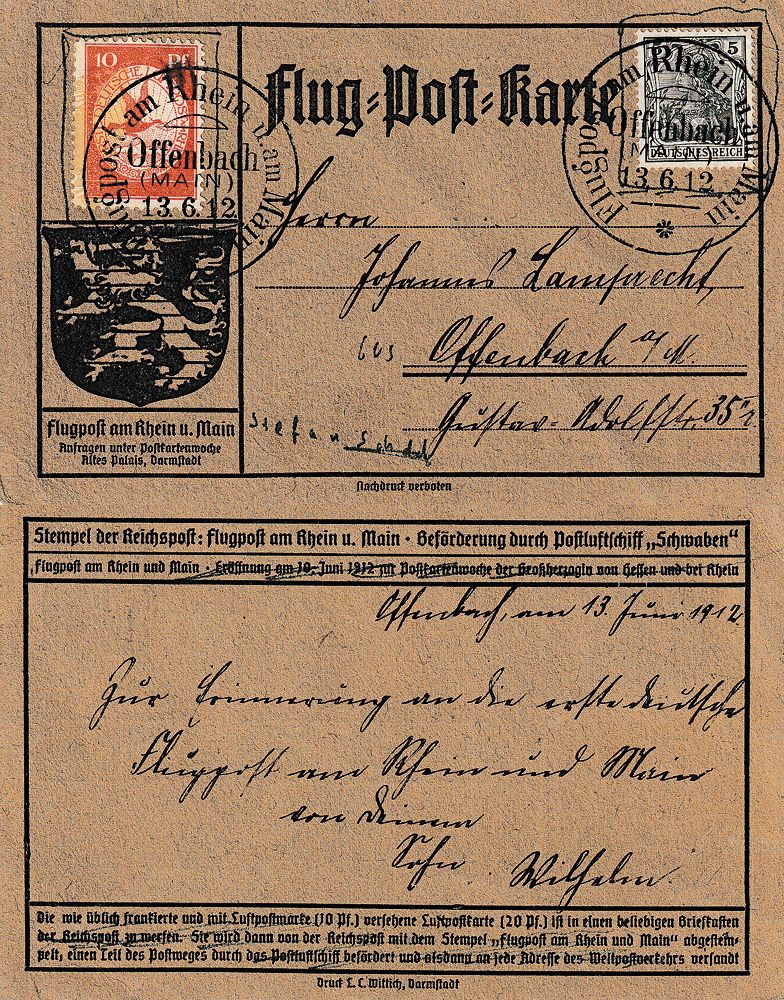 10 Pf
Flug-Post-Karte
5
DEUTSCHES REICH
Flugpost am Rhein u. am Main
Offenbach
(MAIN)
13.6.12
Flugpost am Rhein u. am Main
Offenbach
(MAIN)
13.6.12
*
Herrn
Johannes Lamprecht,
Offenbach a/M.
Gustav-Adolfstr. 35
Stefan
Flugpost am Rhein u. Main
Anfragen unter Postkartenwoche
Altes Palais, Darmstadt
Nachdruck verboten
Stempel der Reichspost: Flugpost am Rhein u. Main · Beförderung durch Postluftschiff „Schwaben“
Flugpost am Rhein und Main · Eröffnung am 10. Juni 1912 zur Postkartenwoche der Großherzogin von Hessen und bei Rhein
Offenbach, am 13. Juni 1912.
Zur Erinnerung an die erste deutsche
Flugpost am Rhein und Main
von Deinem
Sohn Wilhelm.
Die wie üblich frankierte und mit Luftpostmarke (10 Pf.) versehene Luftpostkarte (20 Pf.) ist in einen beliebigen Briefkasten
der Reichspost zu werfen. Sie wird dann von der Reichspost mit dem Stempel „Flugpost am Rhein und Main“ abgestem-
pelt, einen Teil des Postweges durch das Postluftschiff befördert und alsdann an jede Adresse des Weltpostverkehrs versandt
Druck L. C. Wittich, Darmstadt